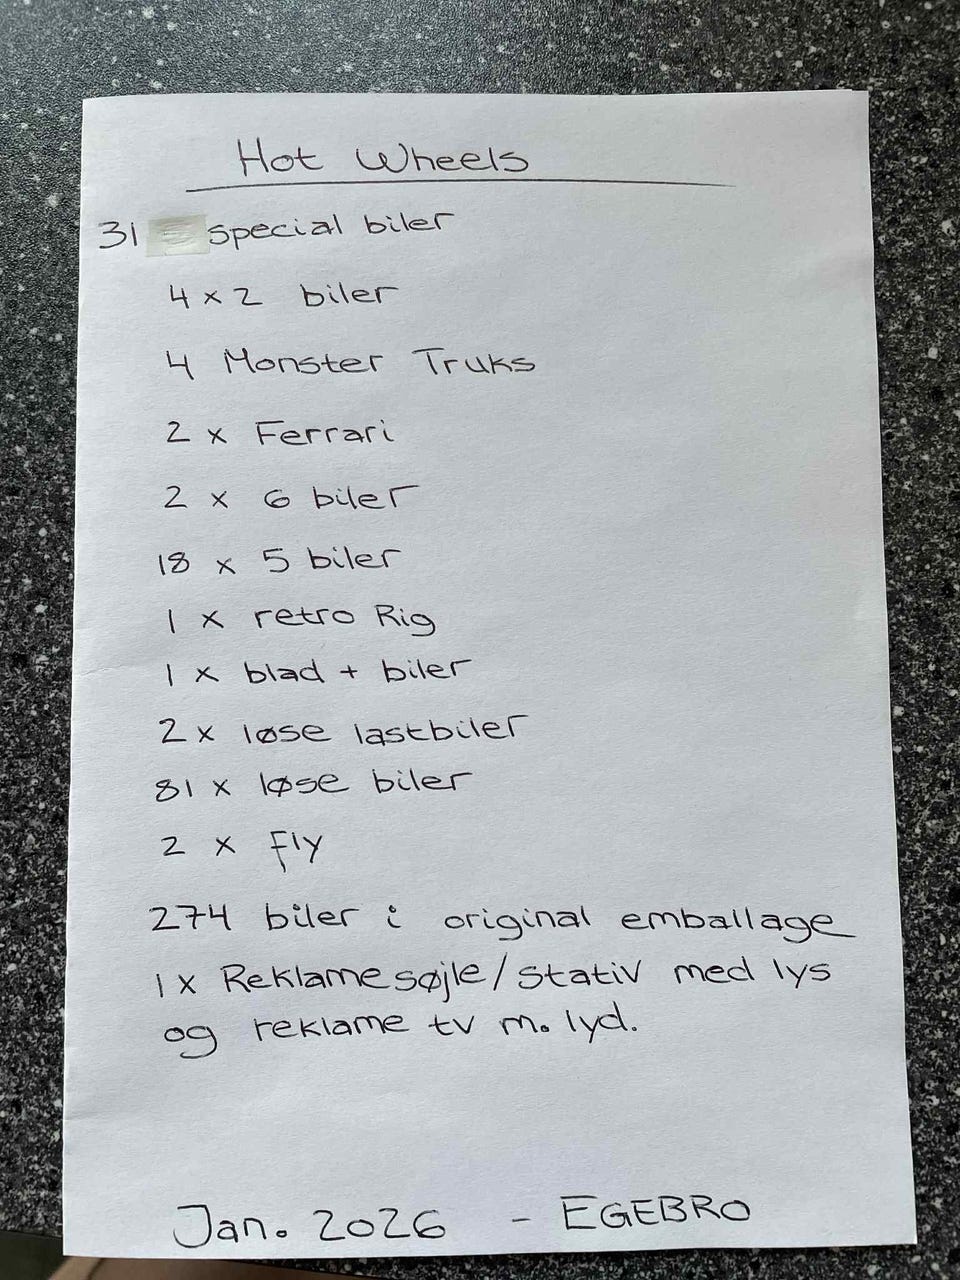 Hot Wheels
31 special biler
4 x 2 biler
4 Monster Truks
2 x Ferrari
2 x 6 biler
18 x 5 biler
1 x retro Rig
1 x blad + biler
2 x løse lastbiler
81 x løse biler
2 x fly
274 biler i original emballage
1 x Reklamesøjle/stativ med lys
og reklame tv m. lyd.
Jan. 2026 - EGEBRO